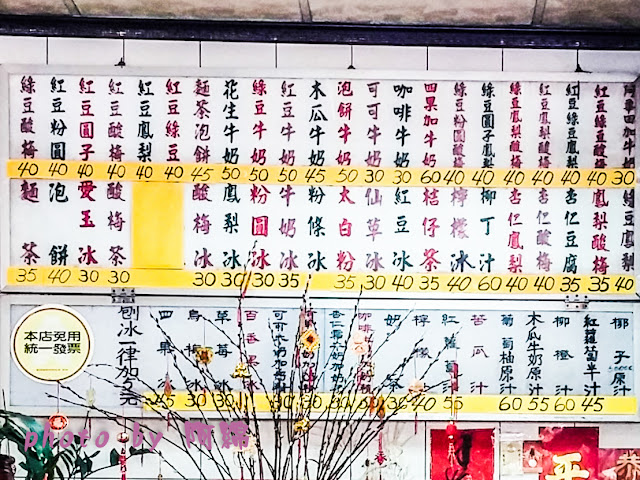 阿華田加牛奶
紅豆綠豆酸梅
紅豆綠豆鳳梨
紅豆鳳梨酸梅
綠豆鳳梨酸梅
綠豆圓子鳳梨
綠豆粉圓酸梅
四果加牛奶
咖啡牛奶
可可牛奶
泡餅牛奶
木瓜牛奶
紅豆牛奶
綠豆牛奶
花生牛奶
麵茶泡餅
紅豆綠豆
紅豆鳳梨
紅豆酸梅
紅豆圓子
紅豆粉圓
綠豆酸梅
40 40 40 40 40 40 45 50 50 50 45 50 30 30 60 40 40 40 40 40 40 30
鳳梨冰
鳳梨酸梅
杏仁豆腐
杏仁酸梅
杏仁鳳梨
柳丁汁
檸檬冰
桔仔茶
紅豆冰
仙草冰
太白粉
粉條冰
牛奶冰
粉圓冰
鳳梨冰
酸梅冰
酸梅茶
愛玉冰
泡餅
麵茶
35 40 30 30 30 30 30 35 35 30 40 35 40 60 40 40 35 35 40
椰子原汁
紅蘿蔔羊汁
柳橙汁
木瓜牛奶原汁
葡萄柚原汁
苦瓜汁
紅蘿蔔汁
檸檬汁
奶茶
百香果冰
草莓冰
烏梅冰
四果冰
刨冰一律加5元
本店免用
統一發票
photo by 阿嬌